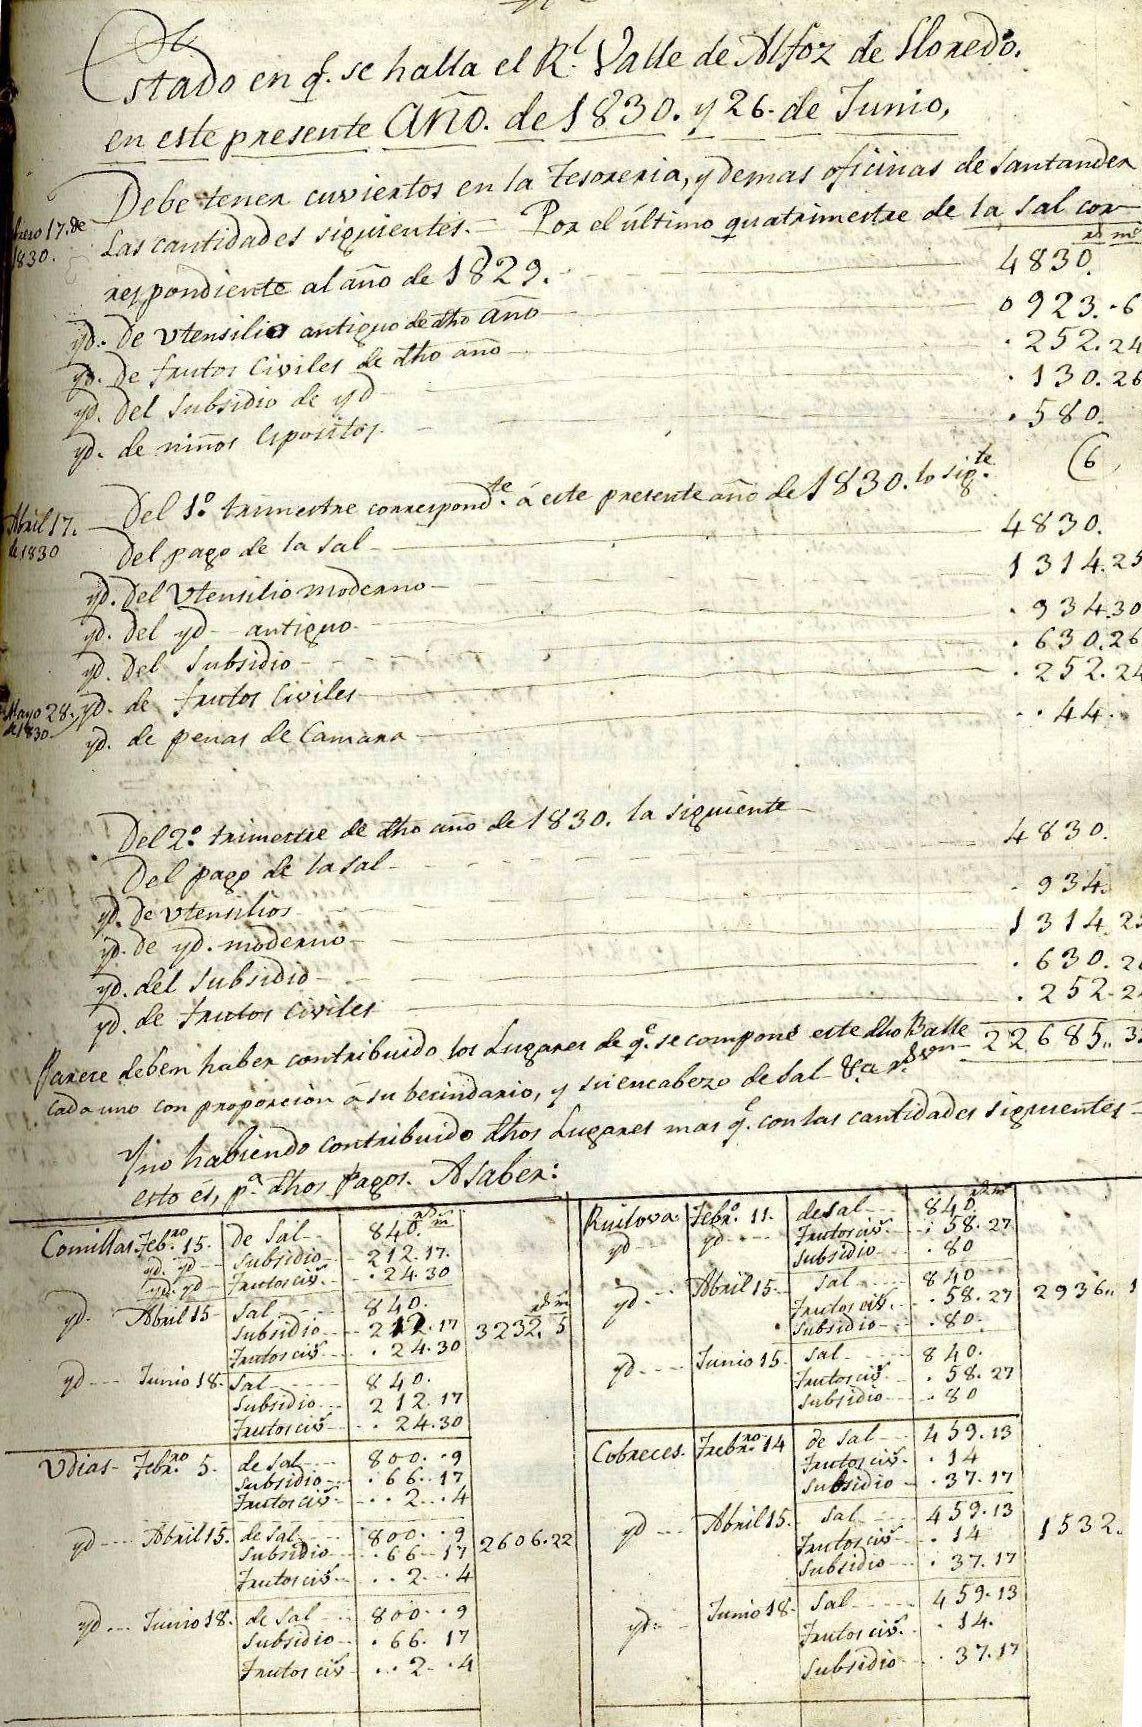 Estado en q.e se halla el R.l Valle de Alfoz de Lloredo.
en este presente año. de 1830. y 26. de Junio,
Debe tener cuviertos en la tesoreria, y demas oficinas de Santander
nero 17. de 1830. Las cantidades siguientes. - Por el último quatrimestre de la sal cor-
rs ms
respondiente al año de 1829. 4830.
yd. De Vtensilio antiguo de dho año 0923. - 6
yd. De frutos Civiles de dho año 252. 24
yd. Del Subsidio de yd 130. 26
yd. de niños Espositos. 580.
(6
Abril 17. de 1830 Del 1.º trimestre correspond.te á este presente año de 1830. lo sig.te
Del pago de la sal 4830.
yd. Del Vtensilio moderno 1314. 25
yd. Del yd - antiguo 934. 30
yd. Del Subsidio 630. 26
yd. de frutos Civiles 252. 24
Mayo 28. de 1830 yd. de penas de Camara 44.
Del 2.º trimestre de dho año de 1830. la siguiente
Del pago de la sal 4830.
yd. De Vtensilios 934.
yd. de yd. moderno 1314. 2
yd. del Subsidio 630. 2
yd. de frutos Civiles 252. 2
Parece deben haber contribuido los Lugares de q.e se compone este dho Balle 22685.. 3
cada uno con proporcion á su becindario, y su encabezo de Sal &.a
Y no habiendo contribuido dhos Lugares mas q.e con las cantidades siguientes -
esto es, p.a dhos pagos. A saber:
rs m
Comillas Febr.ro 15. de Sal 840.
yd. yd Subsidio 212. 17.
yd. yd frutos civ.s 24. 30
yd. Abril 15 Sal 840.
rs m
Subsidio 212. 17 3232. 5
frutos civ.s 24. 30
yd Junio 18. Sal 840.
Subsidio 212. 17
frutos civ.s 24. 30
Vdias Febr.ro 5. de Sal 800. 9
Subsidio 66. 17
frutos civ.s 2. 4
yd Abril 15. de Sal 800. 9
Subsidio 66. 17 2606. 22
frutos civ.s 2. 4
yd Junio 18. de Sal 800. 9
Subsidio 66. 17
frutos civ.s 2. 4
rs ms
Ruilova Febr.o 11. de Sal 840.
yd yd frutos civ.s 58. 27
Subsidio 80
yd. Abril 15. Sal 840
frutos civ.s 58. 27 2936.. 1
Subsidio 80.
yd Junio 15. Sal 840.
frutos civ.s 58. 27
Subsidio 80
Cobreces. Febr.ro 14 de Sal 459. 13
frutos civ.s 14
Subsidio 37. 17
yd Abril 15. Sal 459. 13
frutos civ.s 14 1532.
Subsidio 37. 17
yd. Junio 18. Sal 459. 13
frutos civ.s 14.
Subsidio 37. 17